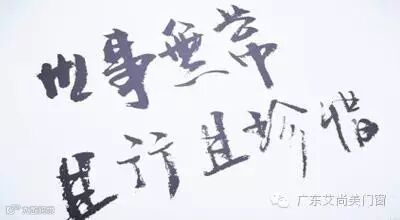 世事無常
且行且珍惜
广东艾尚美门窗